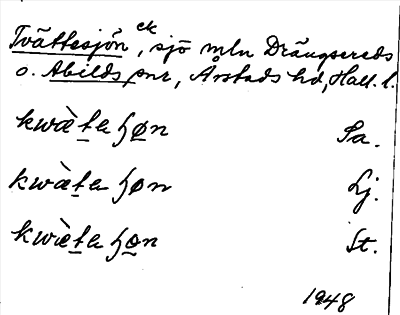 Tvättesjön ck, sjö mln Drängsereds
o. Abilds snr, Årstads hd, Hall. l.
kwæ̀te ɧøn Sa.
kwæ̀te ɧøn Lj.
kwæ̀te ɧøn St.
1948